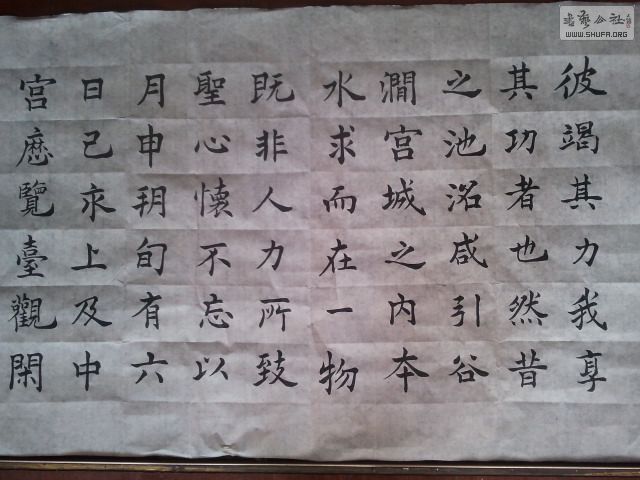 彼竭其力我享
其功者也然昔
之池沼咸引谷
澗宮城之内本
水求而在一物
既非人力所致
聖心懷不忘以
月申朔旬有六
日己亥上及中
宮歷覽臺觀閑
书艺公社
WWW.SHUFA.ORG